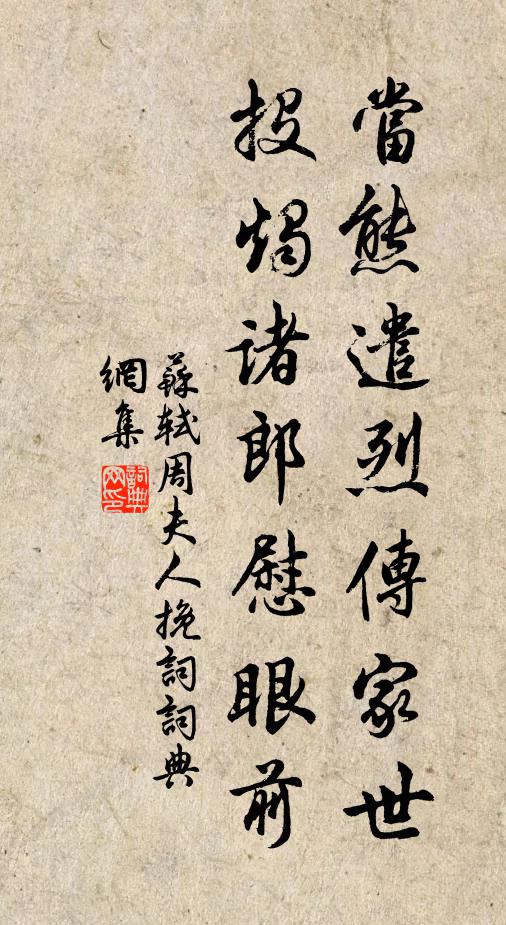 當熊遣烈傳家世
投燭諸郎慰眼前
蘇軾周夫人挽詞詞典
網集
詞典
网印